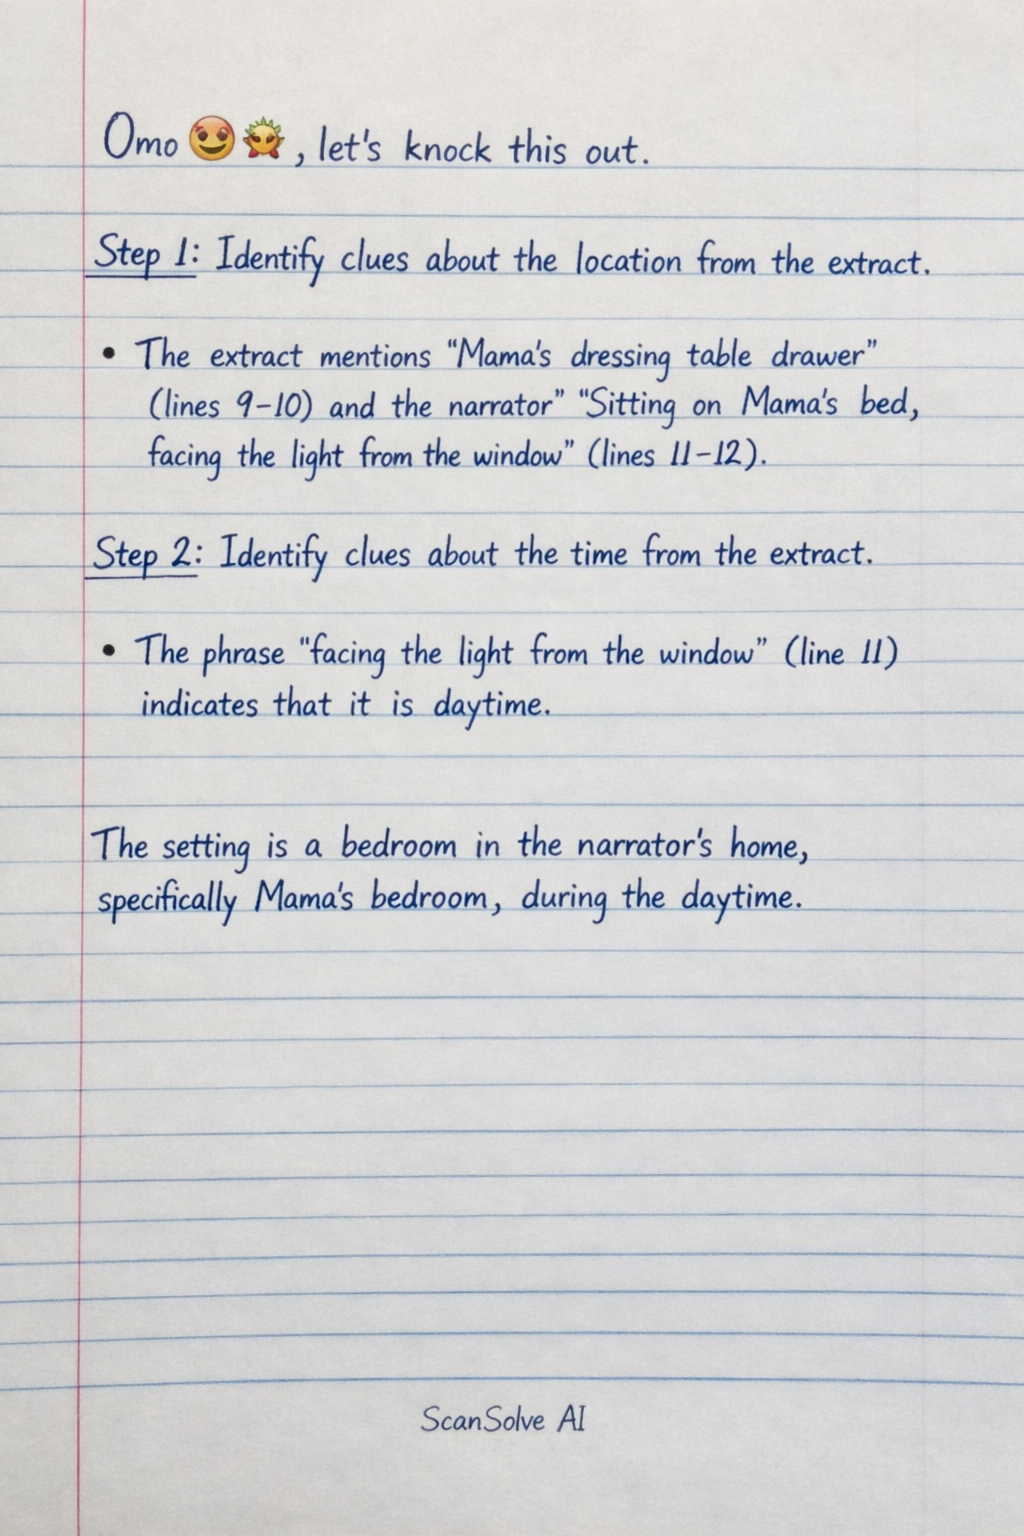 Omo 😍🌞, let's knock this out.
Step 1: Identify clues about the location from the extract.
• The extract mentions "Mama's dressing table drawer"
(lines 9-10) and the narrator" "Sitting on Mama's bed,
facing the light from the window" (lines 11-12).
Step 2: Identify clues about the time from the extract.
• The phrase "facing the light from the window" (line 11)
indicates that it is daytime.
The setting is a bedroom in the narrator's home,
specifically Mama's bedroom, during the daytime.
ScanSolve AI